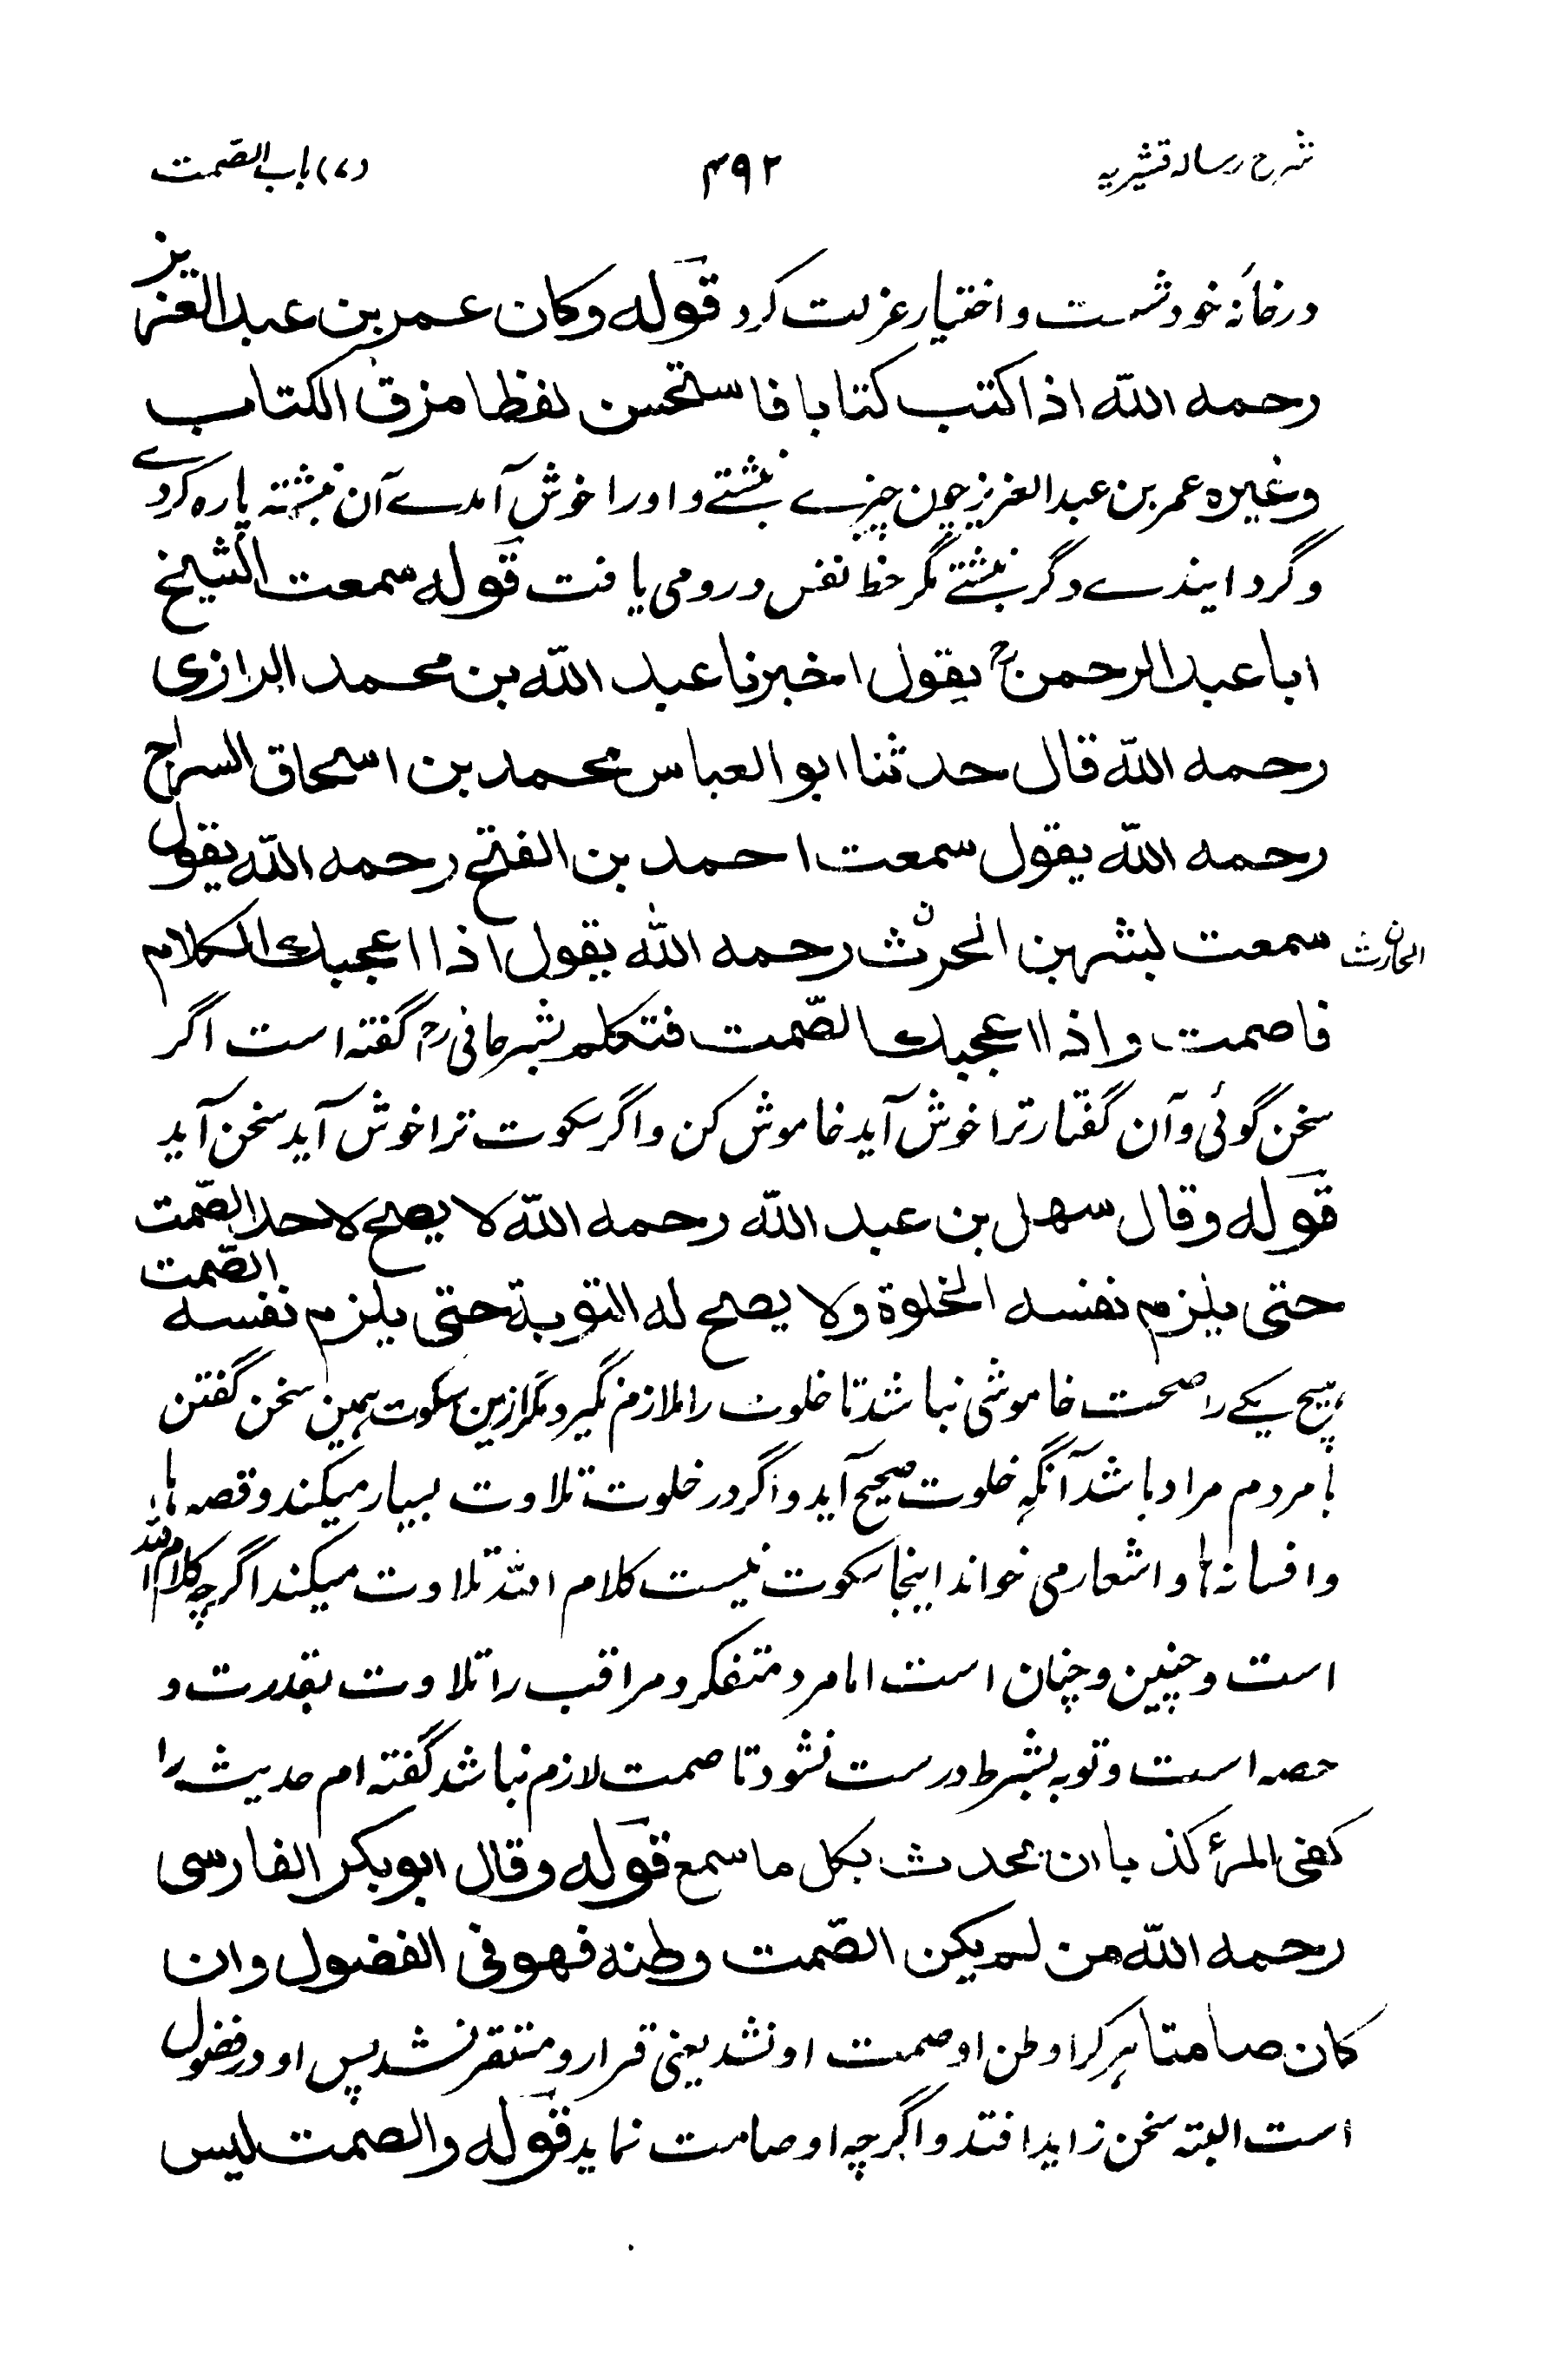 شرح رساله قشیریه ۴۹۲ (۷) باب الصّمت
در خانهٔ خود نشست و اختیار عزلت کرد قوله وکان عمر بن عبد العزیز
رحمه اللّه اذا کتب کتابا فاستحسن لفظا مزق الکتاب
وغیره عمر بن عبد العزیز چون چیزے نبشتے و او را خوش آمدے آن نبشته پاره کردے
و گردایندے دگر نبشتے مگر حظ نفس درو می یافت قوله سمعت الشیخ
ابا عبد الرحمن رح یقول اخبرنا عبد اللّه بن محمد الرازی
رحمه اللّه قال حدثنا ابو العباس محمد بن اسحاق السراج
رحمه اللّه یقول سمعت احمد بن الفتح رحمه اللّه یقول
سمعت بشر بن الحرث ن رحمه اللّه یقول اذا اعجبك الکلام
الحارث ن
فاصمت واذا اعجبك الصّمت فتکلم بشر حافی رح گفته است اگر
سخن گوئی و آن گفتار ترا خوش آید خاموش کن و اگر سکوت ترا خوش آید سخن آید
قوله وقال سهل بن عبد اللّه رحمه اللّه لا یصح لاحد الصّمت
حتی یلزم نفسه الخلوة ولا یصح له التوبة حتی یلزم نفسه الصّمت
هیچ یکے را صحت خاموشی نباشد تا خلوت را ملازم نگیرد مگر ازین سکوت همین سخن گفتن
با مردم مراد باشد آنگه خلوت صحیح آید و اگر در خلوت تلاوت بسیار میکند و قصه ها
و افسانه ها و اشعار می خواند اینجا سکوت نیست کلام اللّه تلاوت میکند اگرچه کلام اللّه
است و چنین و چنان است اما مرد متفکر و مراقب را تلاوت بقدرت و
حصه است و توبه بشرط درست نشود تا صمت لازم نباشد گفته ام حدیث را
کفی المرٔ کذبا ان یحدث بکل ما سمع قوله وقال ابو بکر الفارسی
رحمه اللّه من لم یکن الصّمت وطنه فهو فی الفضول وان
کان صامتا هر کرا وطن او صمت او نشد یعنی قرار و مستقر نشد پس او در فضول
است البته سخن زاید افتد و اگرچه او صامت نماید قوله والصمت لیس